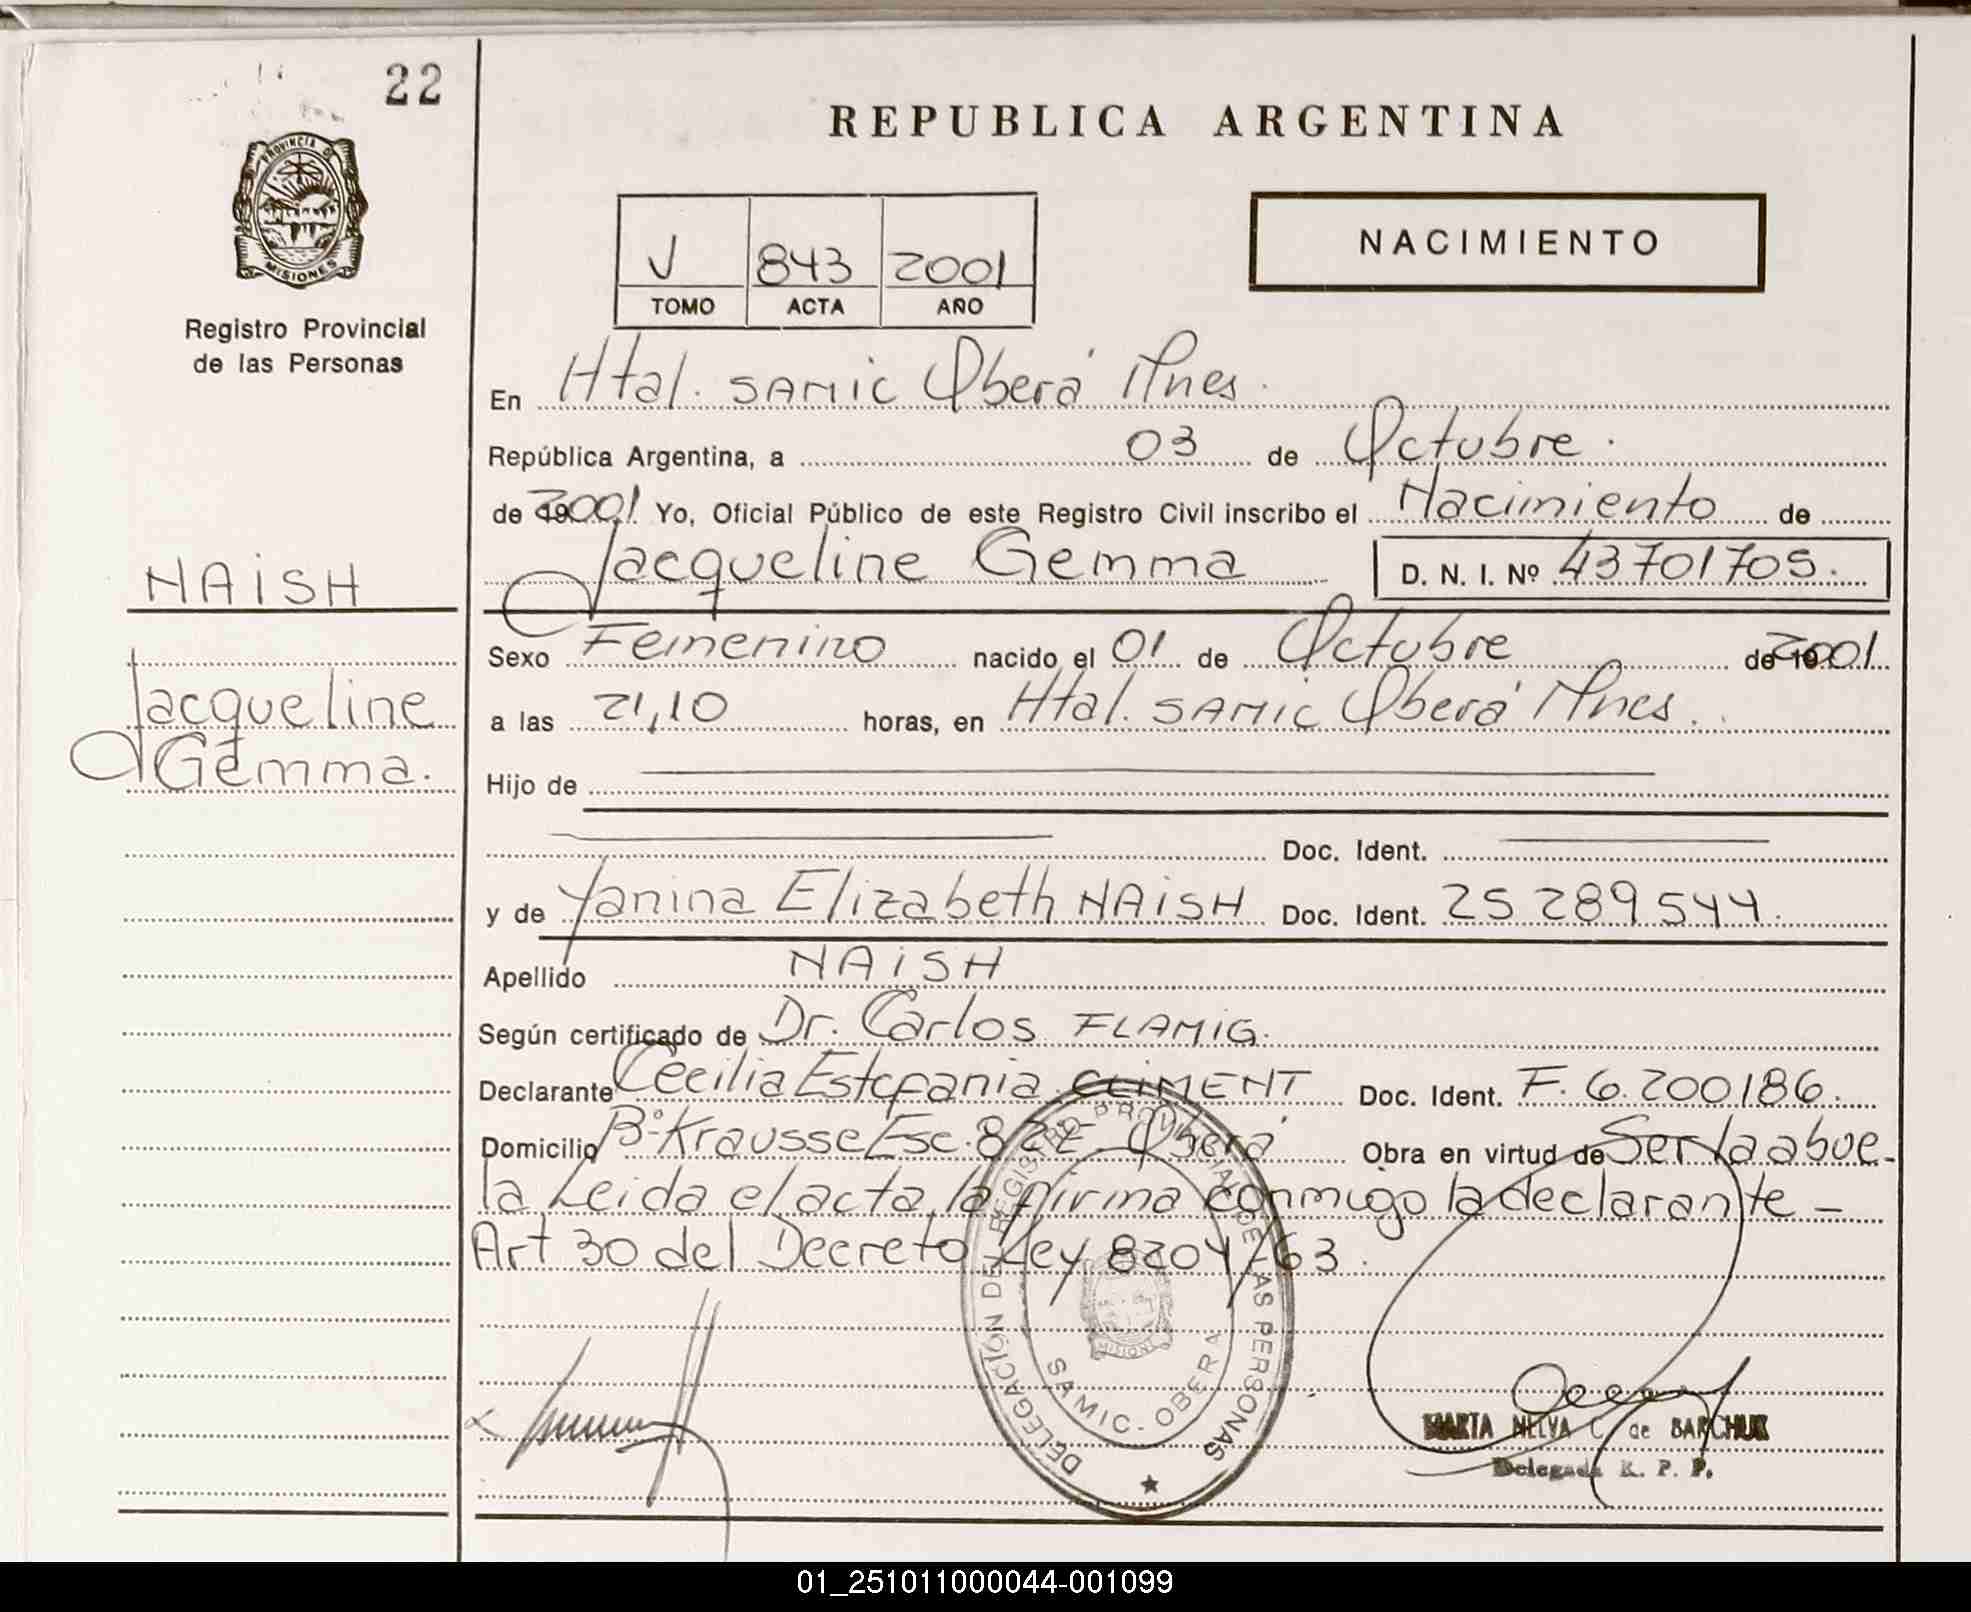 22
PROVINCIA DE
MISIONES
Registro Provincial
de las Personas
NAiSH
Jacqueline
Gemma.
REPUBLICA ARGENTINA
V 843 2001
TOMO ACTA AÑO
NACIMIENTO
En Htal. SAMIC Oberá Mnes.
República Argentina, a 03 de Octubre.
de 2001 Yo, Oficial Público de este Registro Civil inscribo el Nacimiento de
Jacqueline Gemma D. N. I. Nº 43701705.
Sexo Femenino nacido el 01 de Octubre de 2001
a las 21,10 horas, en Htal. SAMIC Oberá Mnes.
Hijo de
Doc. Ident.
y de Yanina Elizabeth NAiSH Doc. Ident. 25 289 544.
Apellido NAiSH
Según certificado de Dr. Carlos FLAMIG.
Declarante Cecilia Estefania CLIMENT Doc. Ident. F. 6.200186.
Domicilio Bº Krausse Esc. 822 - Oberá Obra en virtud de Ser la abue-
la Leida el acta, la firma conmigo la declarante -
Art 30 del Decreto Ley 8204/63.
DELEGACIÓN DEL REGISTRO PROVINCIAL DE LAS PERSONAS
MISIONES
SAMIC. OBERA
MARTA NELVA C. de BARCHUK
Delegada R. P. P.
01_251011000044-001099